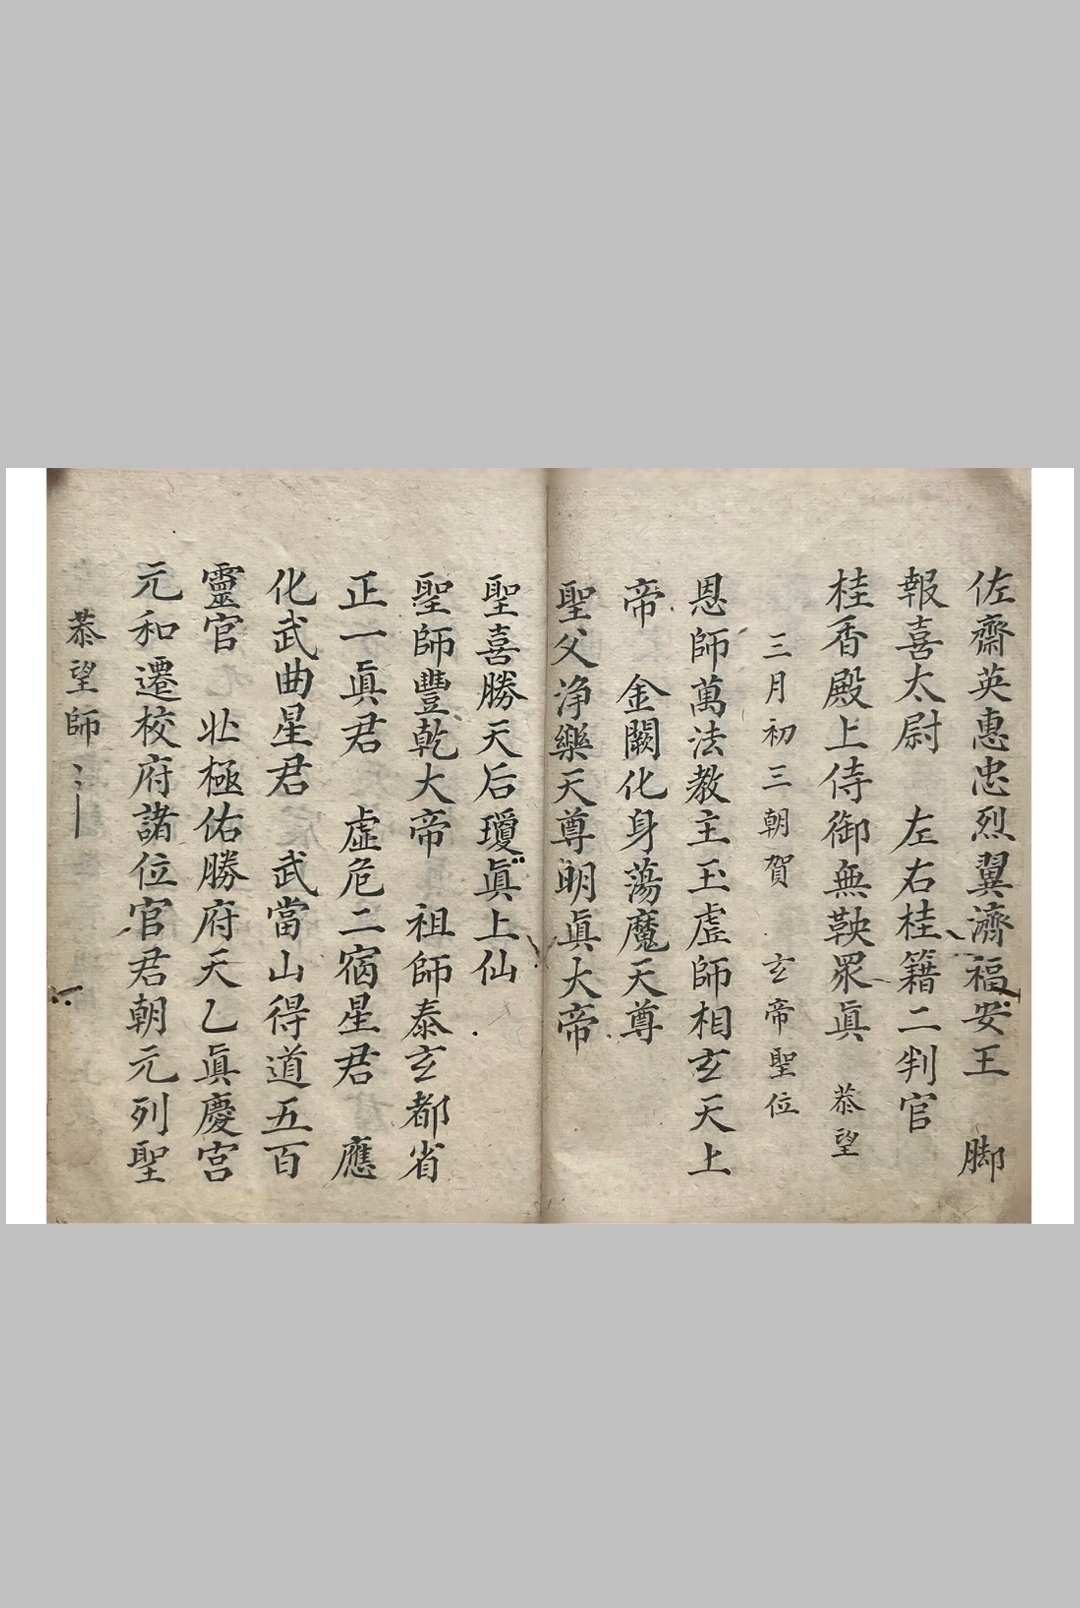 佐齋英惠忠烈翼濟福安王　脚
報喜太尉　左右桂籍二判官
桂香殿上侍御無鞅眾眞　恭望
三月初三朝賀　玄帝聖位
恩師萬法教主玉虛師相玄天上
帝　金闕化身蕩魔天尊
聖父淨樂天尊明眞大帝
聖喜勝天后瓊眞上仙
聖師豐乾大帝　祖師泰玄都省
正一眞君　虛危二宿星君　應
化武曲星君　武當山得道五百
靈官　北極佑勝府天乙眞慶宮
元和遷校府諸位官君朝元列聖
恭望師